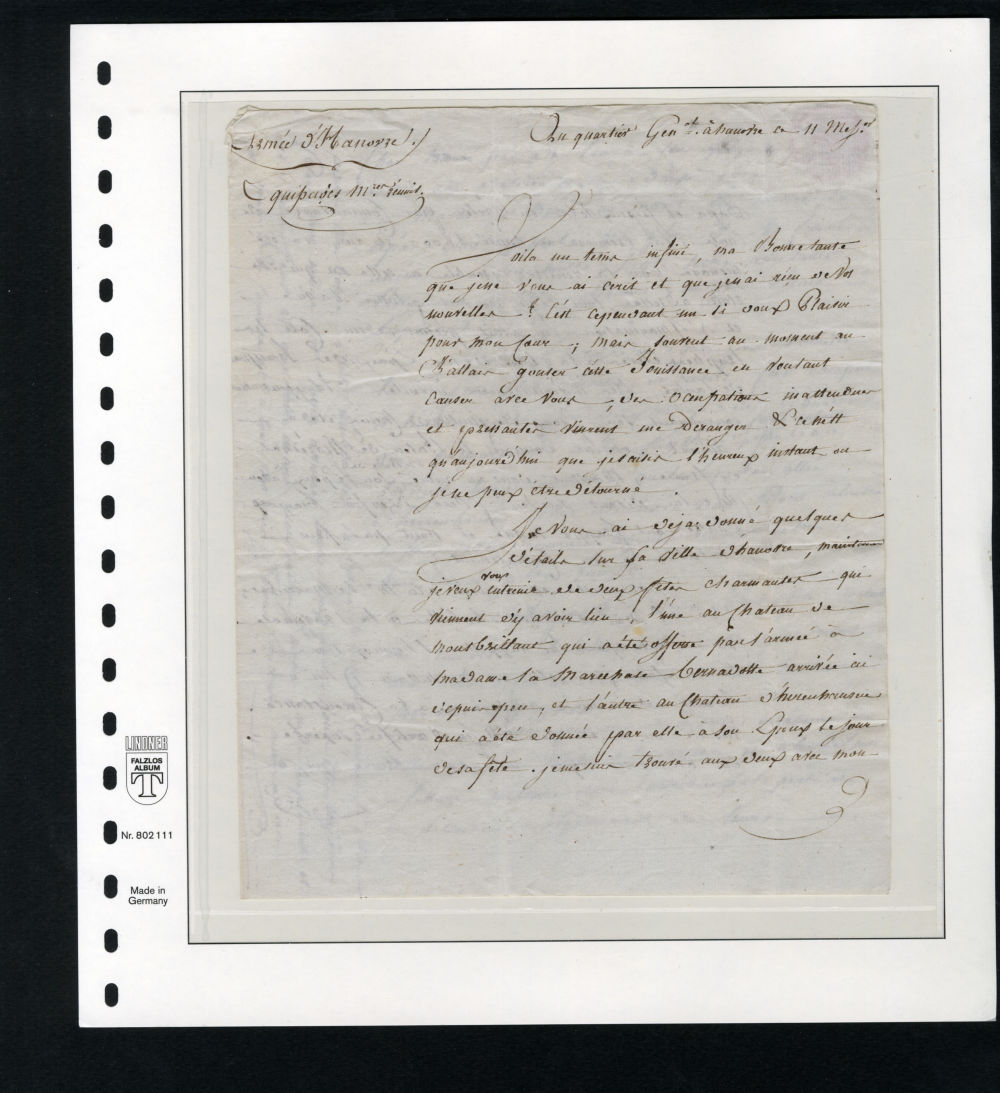 Armée d'Hanovre
Au quartier Gen.al à hanovre ce 11 Mess.or
quipages M.res réunis.
Voila un tems infini, ma Bonne tante
que je ne vous ai écrit et que je n'ai reçu de Vos
nouvelles ! C'est cependant un si doux Plaisir
pour mon Cœur ; mais souvent au moment au
J'allais gouter cette Jouissance en voulant
Causer avec Vous, des occupations inattendues
et pressantes vinrent me Deranger & ce n'est
qu'aujourd'hui que je saisis l'heureux instant ou
je ne peux être détourné.
Je Vous ai déjà donné quelques
détails sur la Ville d'hanovre, maintenant
vous
je veux entretenir de deux fêtes charmantes qui
viennent d'y avoir lieu, l'une au Chateau de
monsbrillant qui a été offerte par l'armée à
madame la Marechale Bernadotte arrivée ici
depuis peu, et l'autre au Chateau d'herenhausen
qui a été donnée par elle à son Epoux le jour
de sa fête. je me suis trouvé aux deux avec mon
LINDNER
FALZLOS
ALBUM
T
Nr. 802 111
Made in
Germany